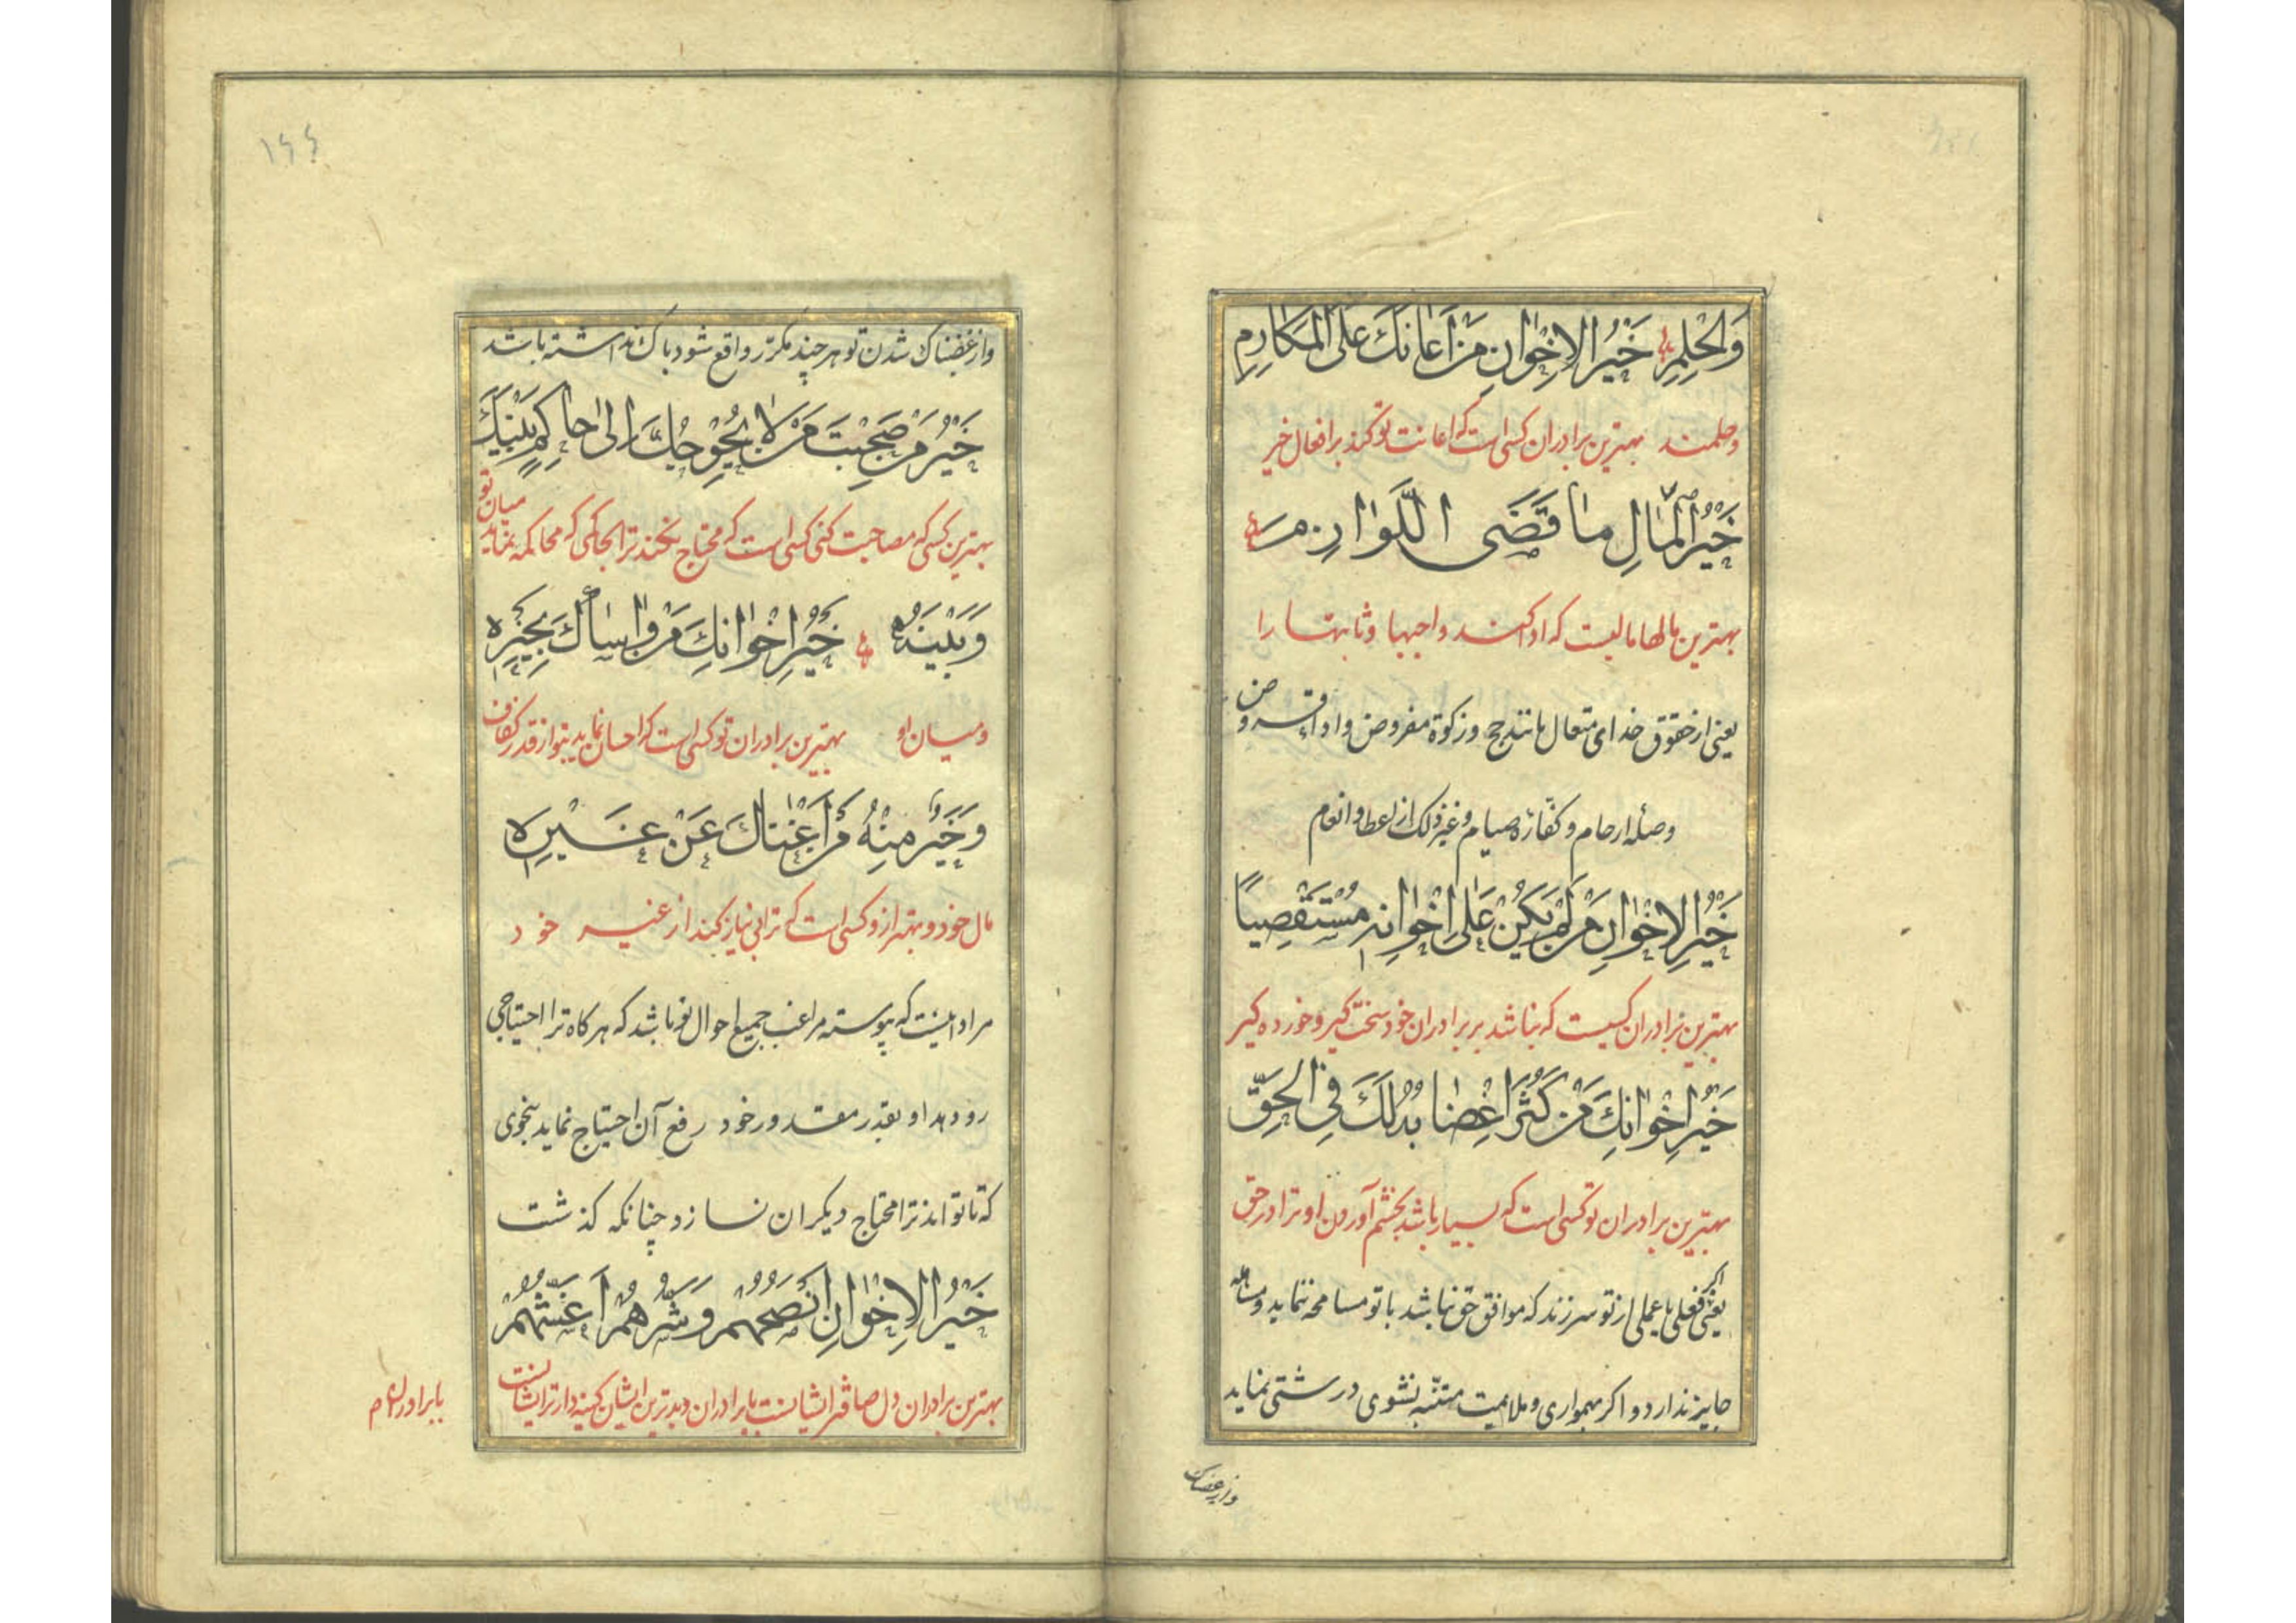 وَالْحِلْمِ خَيْرُ الْاِخْوانِ مَنْ اَعانَكَ عَلَى الْمَكارِمِ
وحلمند بهترین برادران کسی است که اعانت تو کند بر افعال خیر
خَيْرُ الْمالِ ما قَضَى اللَّوازِمَ
بهترین مالها مالیست که ادا کند واجبها وثابتها را
یعنی از حقوق خدای متعال مانند حج وزکوة مفروض وادا قروض
وصلهٔ ارحام وکفّارهٔ صیام وغیر ذلک از اعطا وانعام
خَيْرُ الْاِخْوانِ مَنْ لَمْ يَكُنْ عَلى اِخْوانِهِ مُسْتَقْصِياً
بهترین برادران کسیست که نباشد بر برادران خود سخت کیر وخورده کیر
خَيْرُ اِخْوانِكَ مَنْ كَثُرَ اِغْضابُهُ لَكَ فِي الْحَقِّ
بهترین برادران تو کسی است که بسیار باشد بخشم آوردن او ترا در حق
یعنی اکر فعلی یا عملی از تو سر زند که موافق حق نباشد با تو مسامحه ننماید
جایز ندارد واکر بهمواری وملایمت متنبّه نشوی درشتی نماید
واز غضناک
۱۶۶
واز غضبناک شدن تو هر چند مکرّر واقع شود باک نداشته باشد
خَيْرُ مَنْ صَحِبْتَ مَنْ لا يُحْوِجُكَ اِلى حاكِمٍ بَيْنَكَ
بهترین کسی که مصاحبت کنی کسی است که محتاج نکند ترا بحاکمی که محاکمه نماید میان تو
وَبَيْنَهُ خَيْرُ اِخْوانِكَ مَنْ واساكَ بِخَيْرِهِ
ومیان او بهترین برادران تو کسی است که احسان نماید بتو از قدر کفاف
وَخَيْرٌ مِنْهُ مَنْ اَغْناكَ عَنْ غَيْرِهِ
مال خود وبهتر از و کسی است که ترا بی نیاز کند از غیر خود
مراد اینست که پیوسته مراقب جمیع احوال تو باشد که هر کاه ترا احتیاجی
رو دهد او بقدر مقدور خود رفع آن احتیاج نماید بنحوی
که تا تواند ترا محتاج دیکران نسازد چنانکه کذشت
خَيْرُ الْاِخْوانِ اَنْصَحُهُمْ وَشَرُّهُمْ اَغَشُّهُمْ
بهترین برادران دل صافتر ایشانست با برادران وبدترین ایشان کینه دارتر ایشانست
با برادران